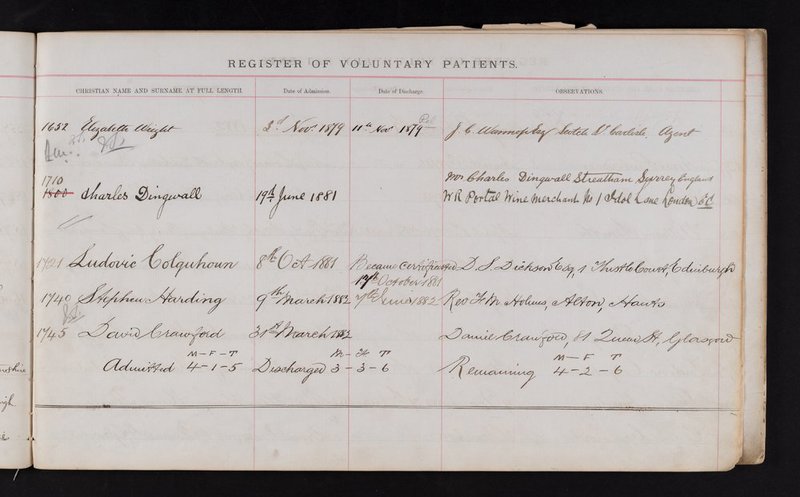 REGISTER OF VOLUNTARY PATIENTS.
CHRISTIAN NAME AND SURNAME AT FULL LENGTH Date of Admission. Date of Discharge. OBSERVATIONS
1652 Elizabeth Wright 2d Nov 1879 11th Nov 1879 J. C. Esq Scotch St Carlisle. Agent
1710 Mrs Charles Dingwall Streatham Surrey England
1800 Charles Dingwall 19th June 1881 W R Portal Wine Merchant No 1 Idol Lane London E.C
1721 Ludovic Colquhoun 8th Oct 1881 Became certificated D. S. Dickson Esq, 1 Thistle Court, Edinburgh
17th October 1881
1740 Stephen Harding 9th March 1882 7th June 1882 Rev F M Holmes, Alton, Hants
1745 David Crawford 31st March 1882 Daniel Crawford, 81 Queen St, Glasgow
M-F-T M-F T M-F T
Admitted 4-1-5 Discharged 3-3-6 Remaining 4-2-6